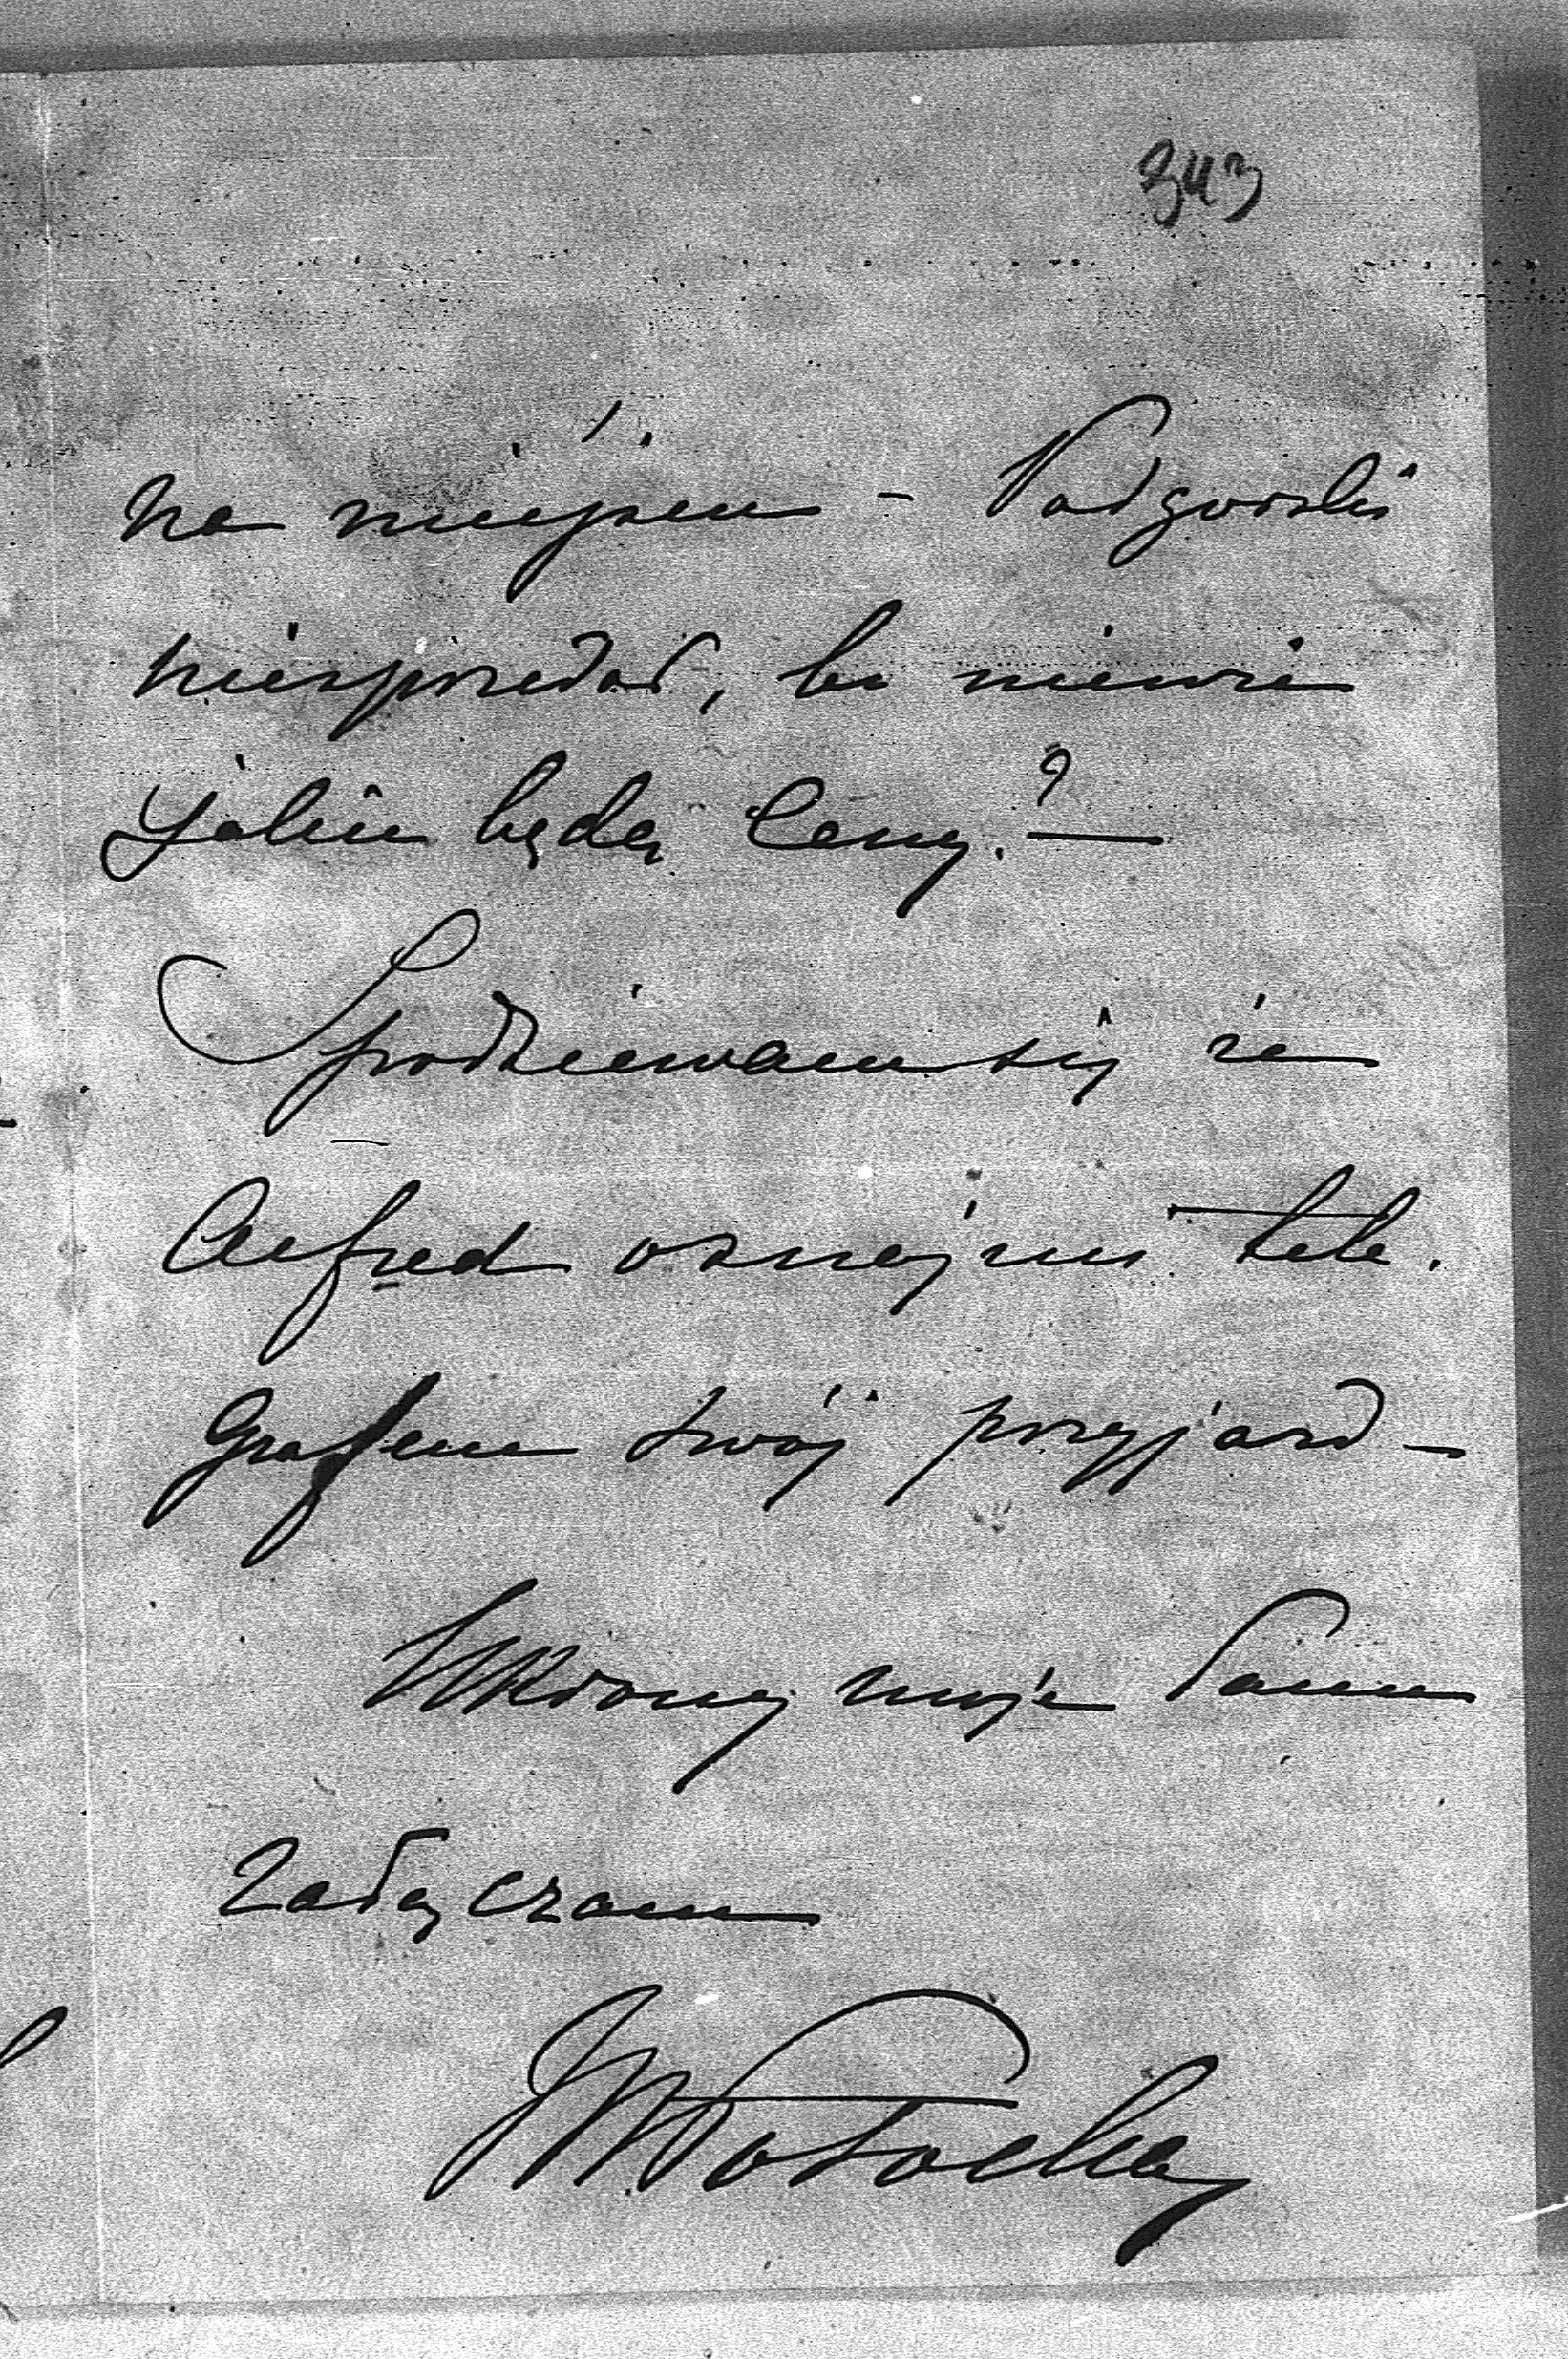 343
na miéjscu – Podgorski
niesprzedał, bo niewie
jakie będą Ceny. ? —
Spodziewam się że
Alfred oznajmi tele.
grafem swój przyjazd –
Ukłony moje Panu
załączam
MPotocka